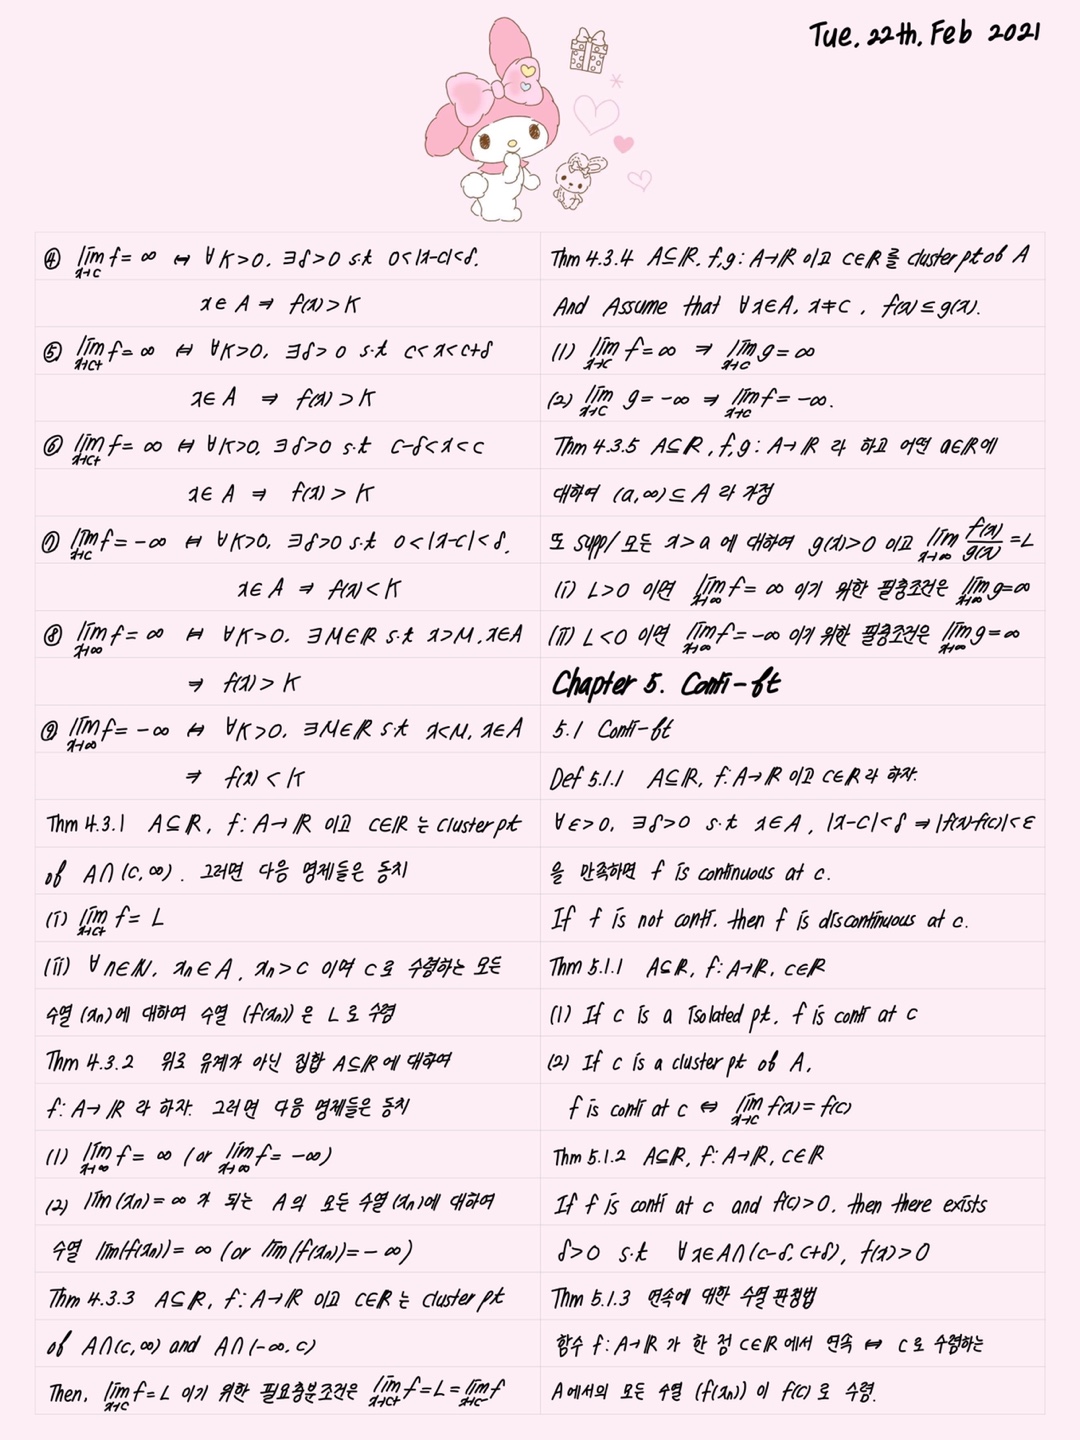 Tue. 22th. Feb 2021
④ lim_{x→c} f = ∞ ⇔ ∀K>0, ∃δ>0 s.t 0<|x-c|<δ,
x∈A ⇒ f(x)>K
⑤ lim_{x→c+} f = ∞ ⇔ ∀K>0, ∃δ>0 s.t c<x<c+δ
x∈A ⇒ f(x)>K
⑥ lim_{x→c+} f = ∞ ⇔ ∀K>0, ∃δ>0 s.t c-δ<x<c
x∈A ⇒ f(x)>K
⑦ lim_{x→c} f = -∞ ⇔ ∀K>0, ∃δ>0 s.t 0<|x-c|<δ,
x∈A ⇒ f(x)<K
⑧ lim_{x→∞} f = ∞ ⇔ ∀K>0, ∃M∈R s.t x>M, x∈A
⇒ f(x)>K
⑨ lim_{x→∞} f = -∞ ⇔ ∀K>0, ∃M∈R s.t x<M, x∈A
⇒ f(x)<K
Thm 4.3.1 A⊆R, f: A→R 이고 c∈R는 cluster pt
of A∩(c,∞). 그러면 다음 명제들은 동치
(i) lim_{x→c+} f = L
(ii) ∀n∈N, xn∈A, xn>c 이며 c로 수렴하는 모든
수열 (xn)에 대하여 수열 (f(xn))은 L로 수렴
Thm 4.3.2 위로 유계가 아닌 집합 A⊆R에 대하여
f: A→R 라 하자. 그러면 다음 명제들은 동치
(1) lim_{x→∞} f = ∞ (or lim_{x→∞} f = -∞)
(2) lim(xn)=∞ 가 되는 A의 모든 수열(xn)에 대하여
수열 lim(f(xn)) = ∞ (or lim(f(xn)) = -∞)
Thm 4.3.3 A⊆R, f: A→R 이고 c∈R는 cluster pt
of A∩(c,∞) and A∩(-∞,c)
Then, lim_{x→c} f=L 이기 위한 필요충분조건은 lim_{x→c+} f=L=lim_{x→c-} f
Thm 4.3.4 A⊆R, f,g: A→R 이고 c∈R를 cluster pt of A
And Assume that ∀x∈A, x≠c, f(x)≤g(x).
(1) lim_{x→c} f=∞ ⇒ lim_{x→c} g=∞
(2) lim_{x→c} g=-∞ ⇒ lim_{x→c} f=-∞.
Thm 4.3.5 A⊆R, f,g: A→R 라 하고 어떤 a∈R에
대하여 (a,∞)⊆A 라 가정
또 supp/ 모든 x>a에 대하여 g(x)>0 이고 lim_{x→∞} f(x)/g(x) = L
(i) L>0 이면 lim_{x→∞} f = ∞ 이기 위한 필충조건은 lim_{x→∞} g=∞
(ii) L<0 이면 lim_{x→∞} f=-∞ 이기 위한 필충조건은 lim_{x→∞} g=∞
Chapter 5. Conti-ft
5.1 Conti-ft
Def 5.1.1 A⊆R, f: A→R 이고 c∈R라 하자.
∀ε>0, ∃δ>0 s.t x∈A, |x-c|<δ ⇒ |f(x)-f(c)|<ε
을 만족하면 f is continuous at c.
If f is not conti, then f is discontinuous at c.
Thm 5.1.1 A⊆R, f: A→R, c∈R
(1) If c is a isolated pt, f is conti at c
(2) If c is a cluster pt of A,
f is conti at c ⇔ lim_{x→c} f(x)=f(c)
Thm 5.1.2 A⊆R, f: A→R, c∈R
If f is conti at c and f(c)>0, then there exists
δ>0 s.t ∀x∈A∩(c-δ, c+δ), f(x)>0
Thm 5.1.3 연속에 대한 수열 판정법
함수 f: A→R가 한 점 c∈R에서 연속 ⇔ c로 수렴하는
A에서의 모든 수열 (f(xn))이 f(c)로 수렴.